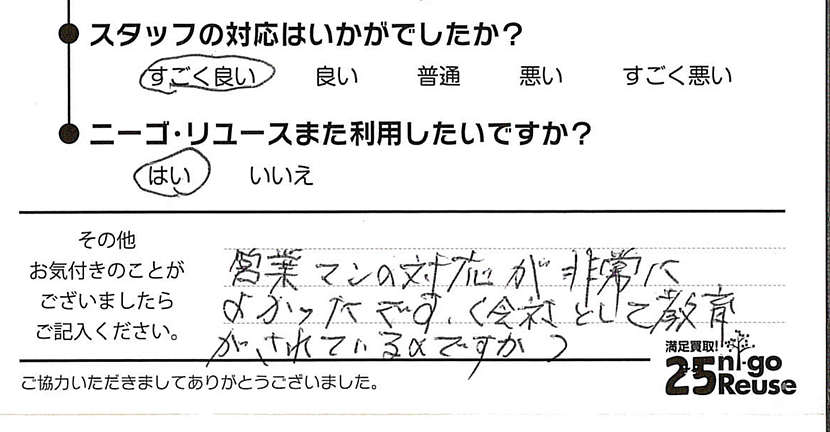 スタッフの対応はいかがでしたか?
すごく良い 良い 普通 悪い すごく悪い
ニーゴ・リユースまた利用したいですか?
はい いいえ
その他
お気付きのことが
ございましたら
ご記入ください。
営業マンの対応が非常に
よかったです。(会社として教育
がされているのですか)
満足買取!
25 ni-go
Reuse
ご協力いただきましてありがとうございました。